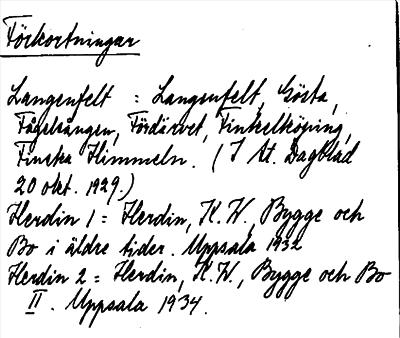 Förkortningar
Langenfelt : Langenfelt, Gösta,
Fågelsången, Fördärvet, Finkelköping,
Finska Himmeln. (I St. Dagblad
20 okt. 1929.)
Herdin 1 = Herdin, K.W., Bygge och
Bo i äldre tider. Uppsala 1932
Herdin 2 = Herdin, K.W., Bygge och Bo
II. Uppsala 1934.